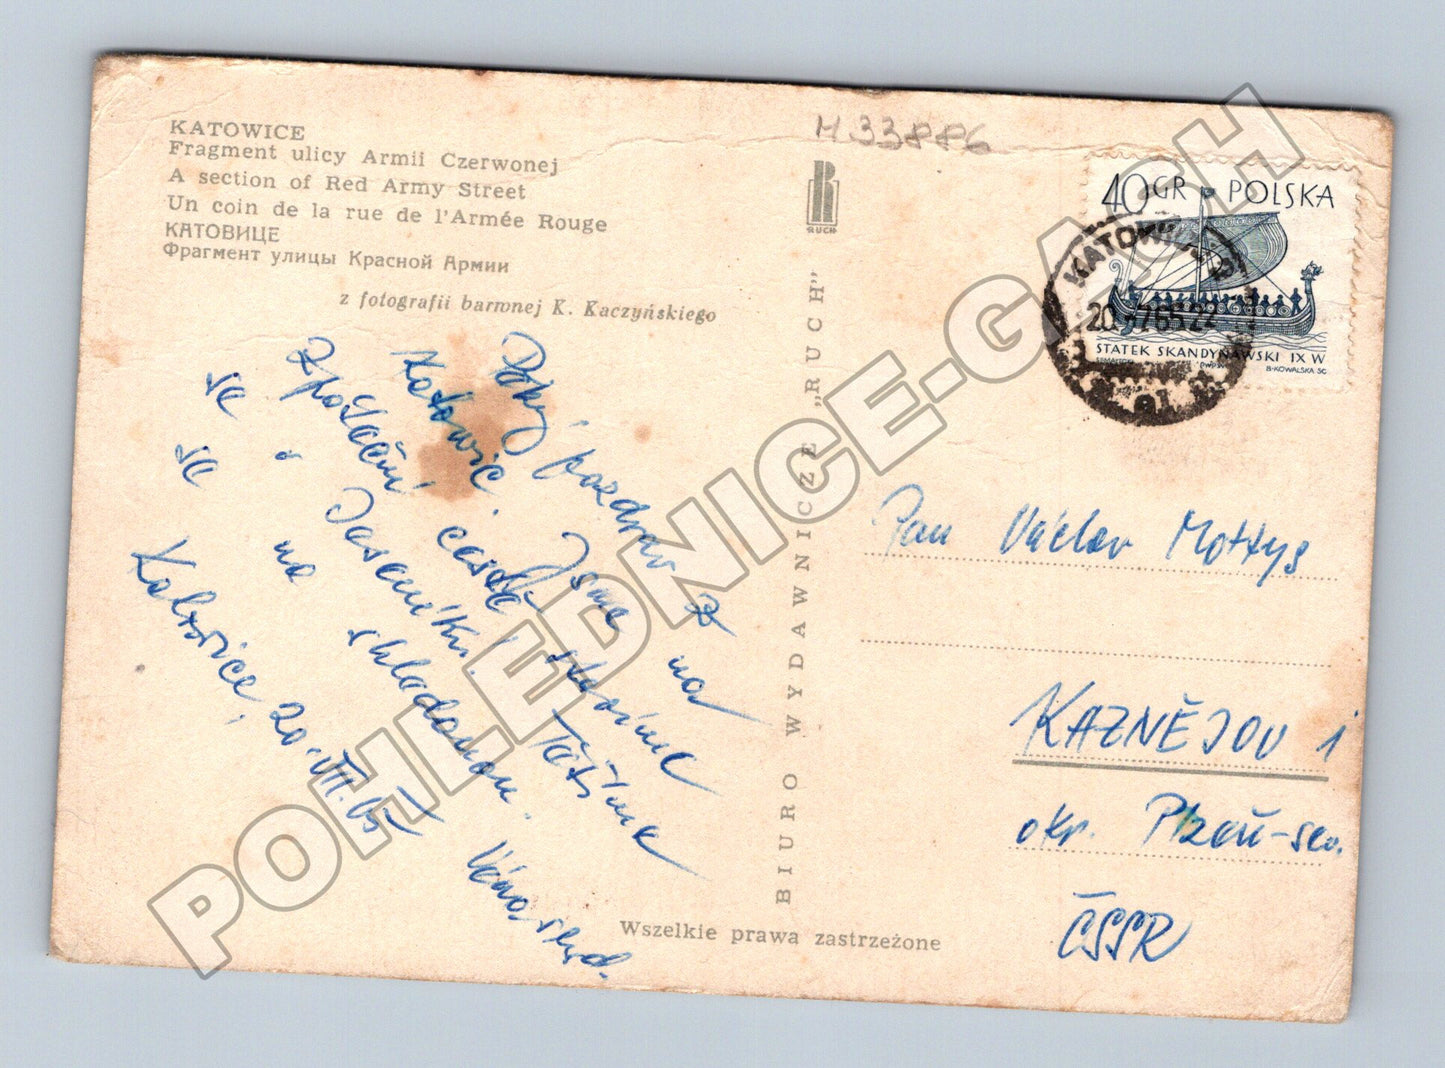 KATOWICE
Fragment ulicy Armii Czerwonej
A section of Red Army Street
Un coin de la rue de l'Armée Rouge
КАТОВИЦЕ
Фрагмент улицы Красной Армии
z fotografii barwnej K. Kaczyńskiego
H 33886
RUCH
40 GR POLSKA
STATEK SKANDYNAWSKI IX W
B·KOWALSKA SC
KATOWICE
20.-7.65.22
BIURO WYDAWNICZE „RUCH"
Wszelkie prawa zastrzeżone
pozdrav z
Katowic Jsme na
zpáteční cestě slavíme
v Jeseníku. Těšíme
se na shledanou.
Katovice, 20.VII.65
Pan Václav Mottys
KAZNĚJOV 1
okr. Plzeň-sev.
ČSSR
POHLEDNICE.GASH